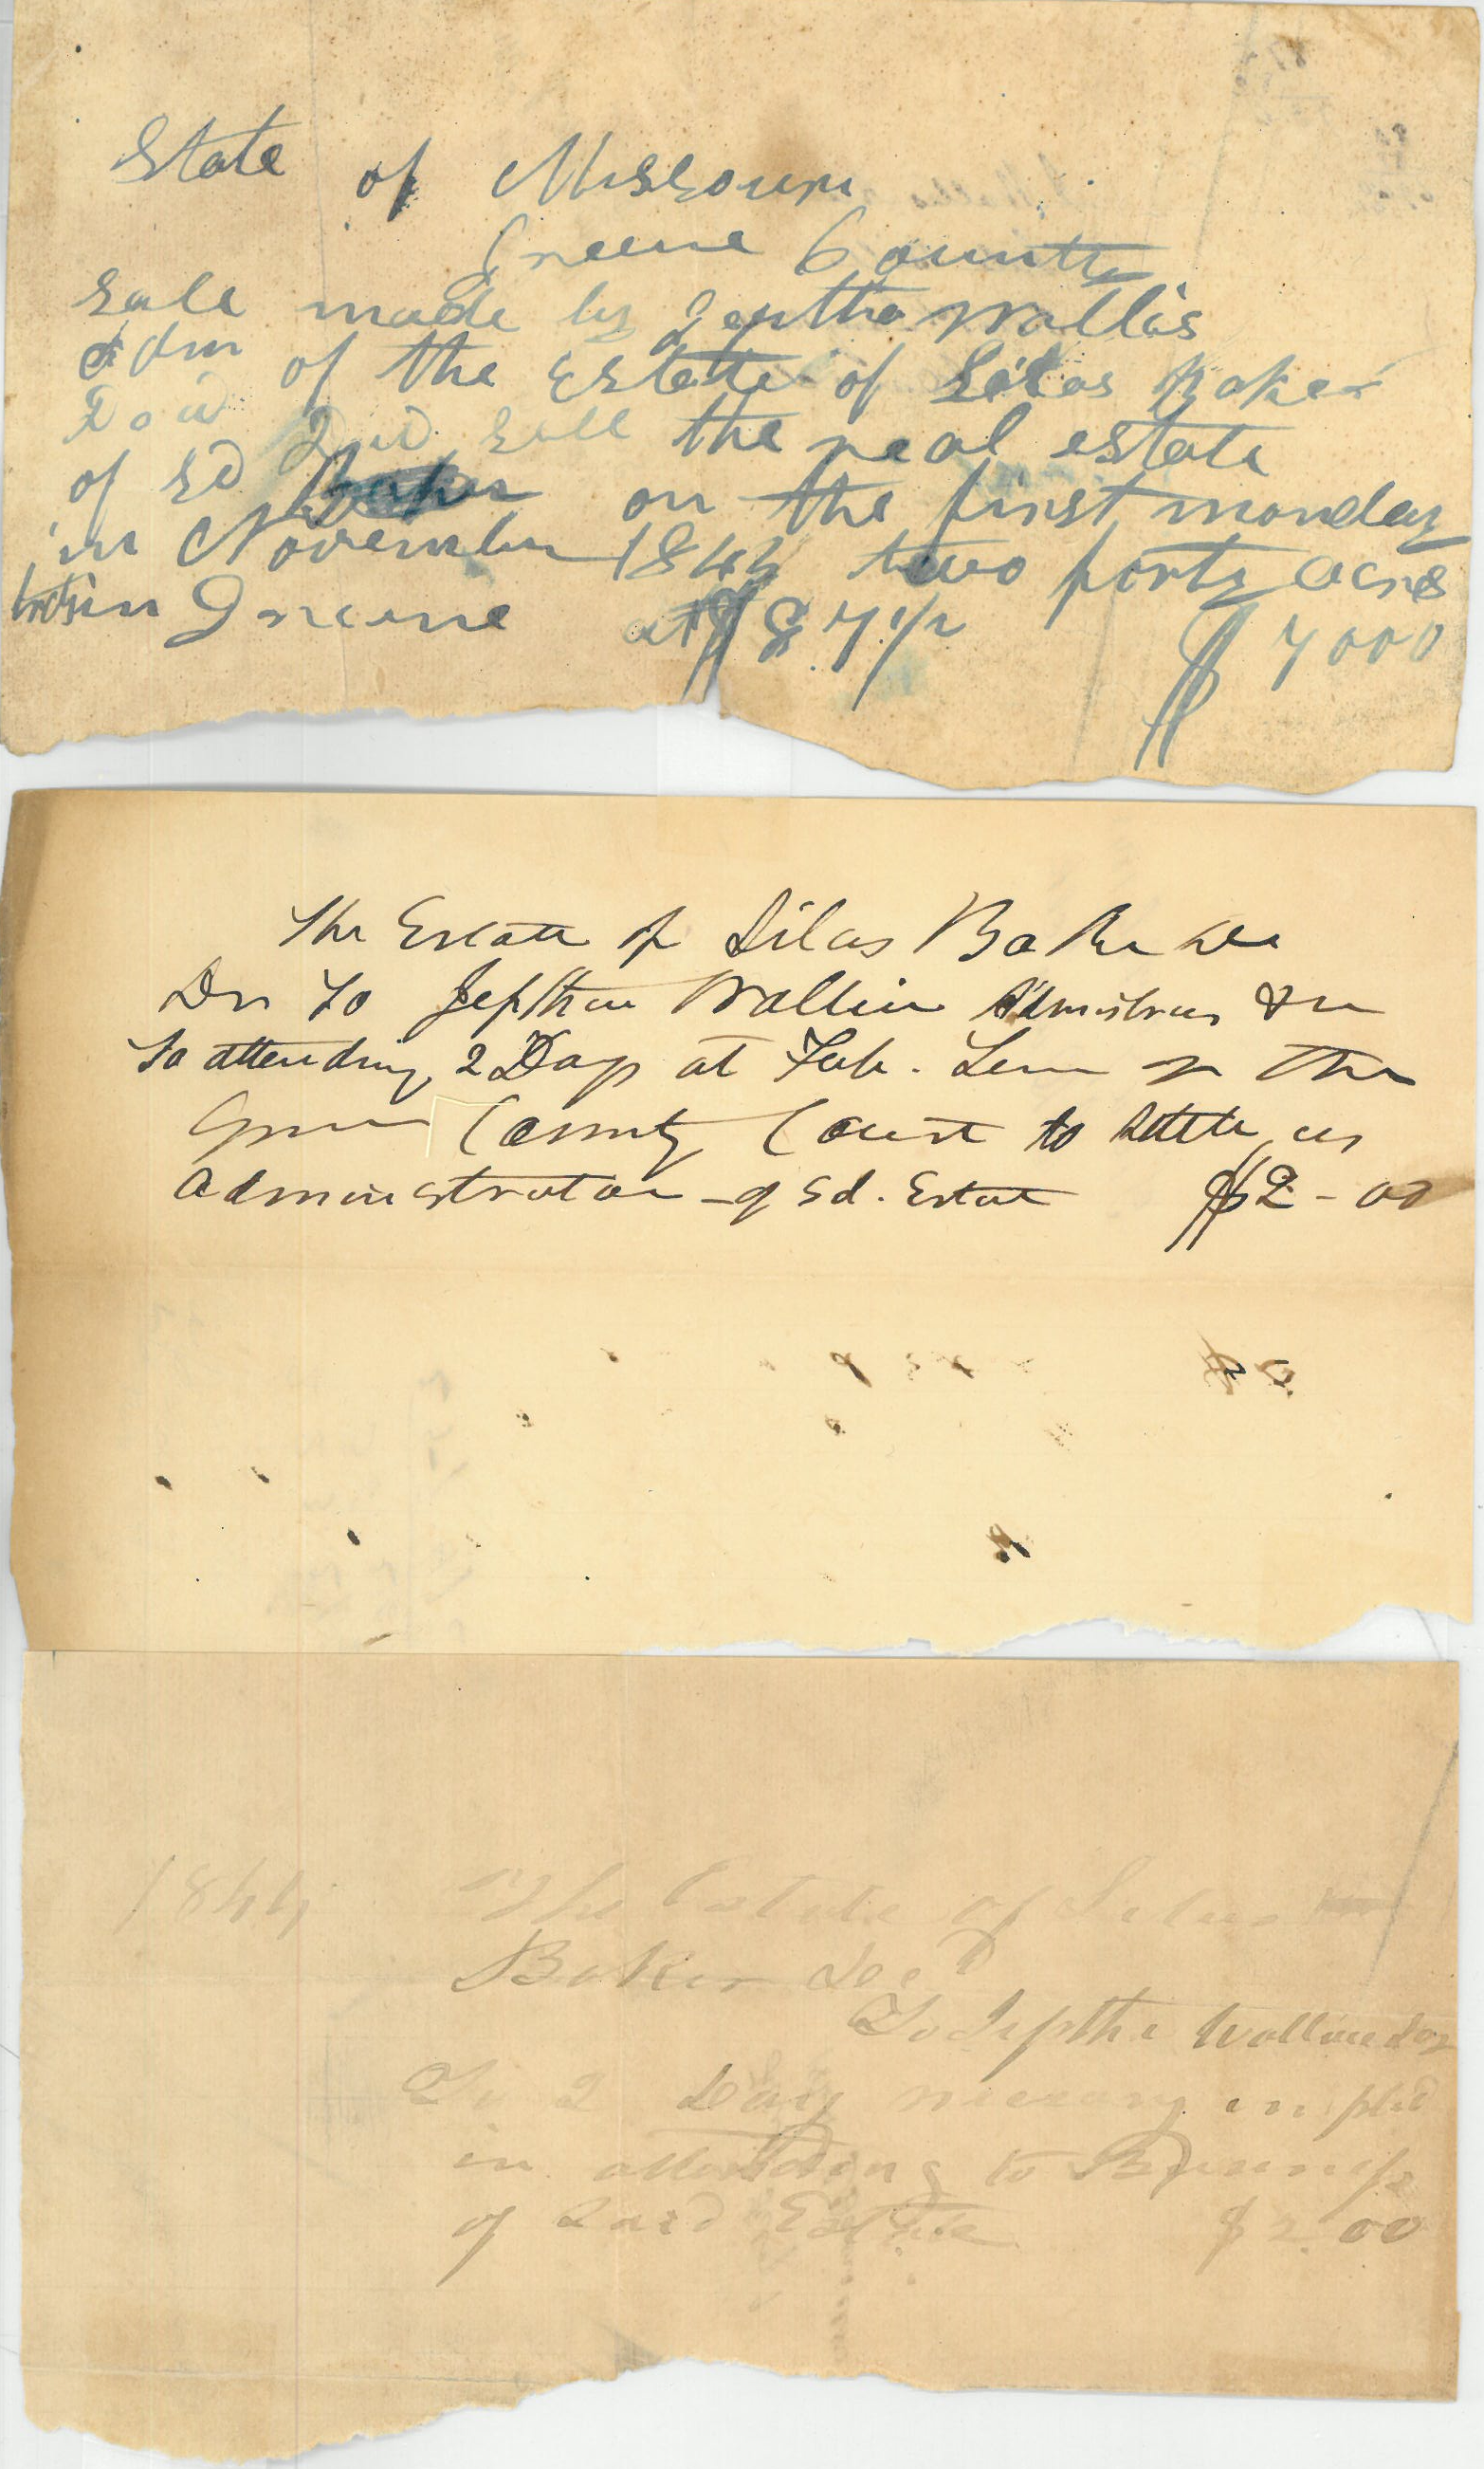 State of Missouri
Greene County
Sale made by Jeptha Wallis
Adm of the Estate of Silas Baker
Did Sell the real estate
of sd Baker on the first monday
in November 1844 two forty acre
in Greene at $87 1/2 $7000
The Estate of Silas Baker
Dr to Jepthae Wallis
To attending 2 Days at Feb. Term of the
Green County Court to settle as
administrator of Sd. Estate $2-00
1844 The Estate of Silas
Baker Decd
To Jeptha Wallace
To 2 Day
in attending to Bisness
of said Estate $2.00